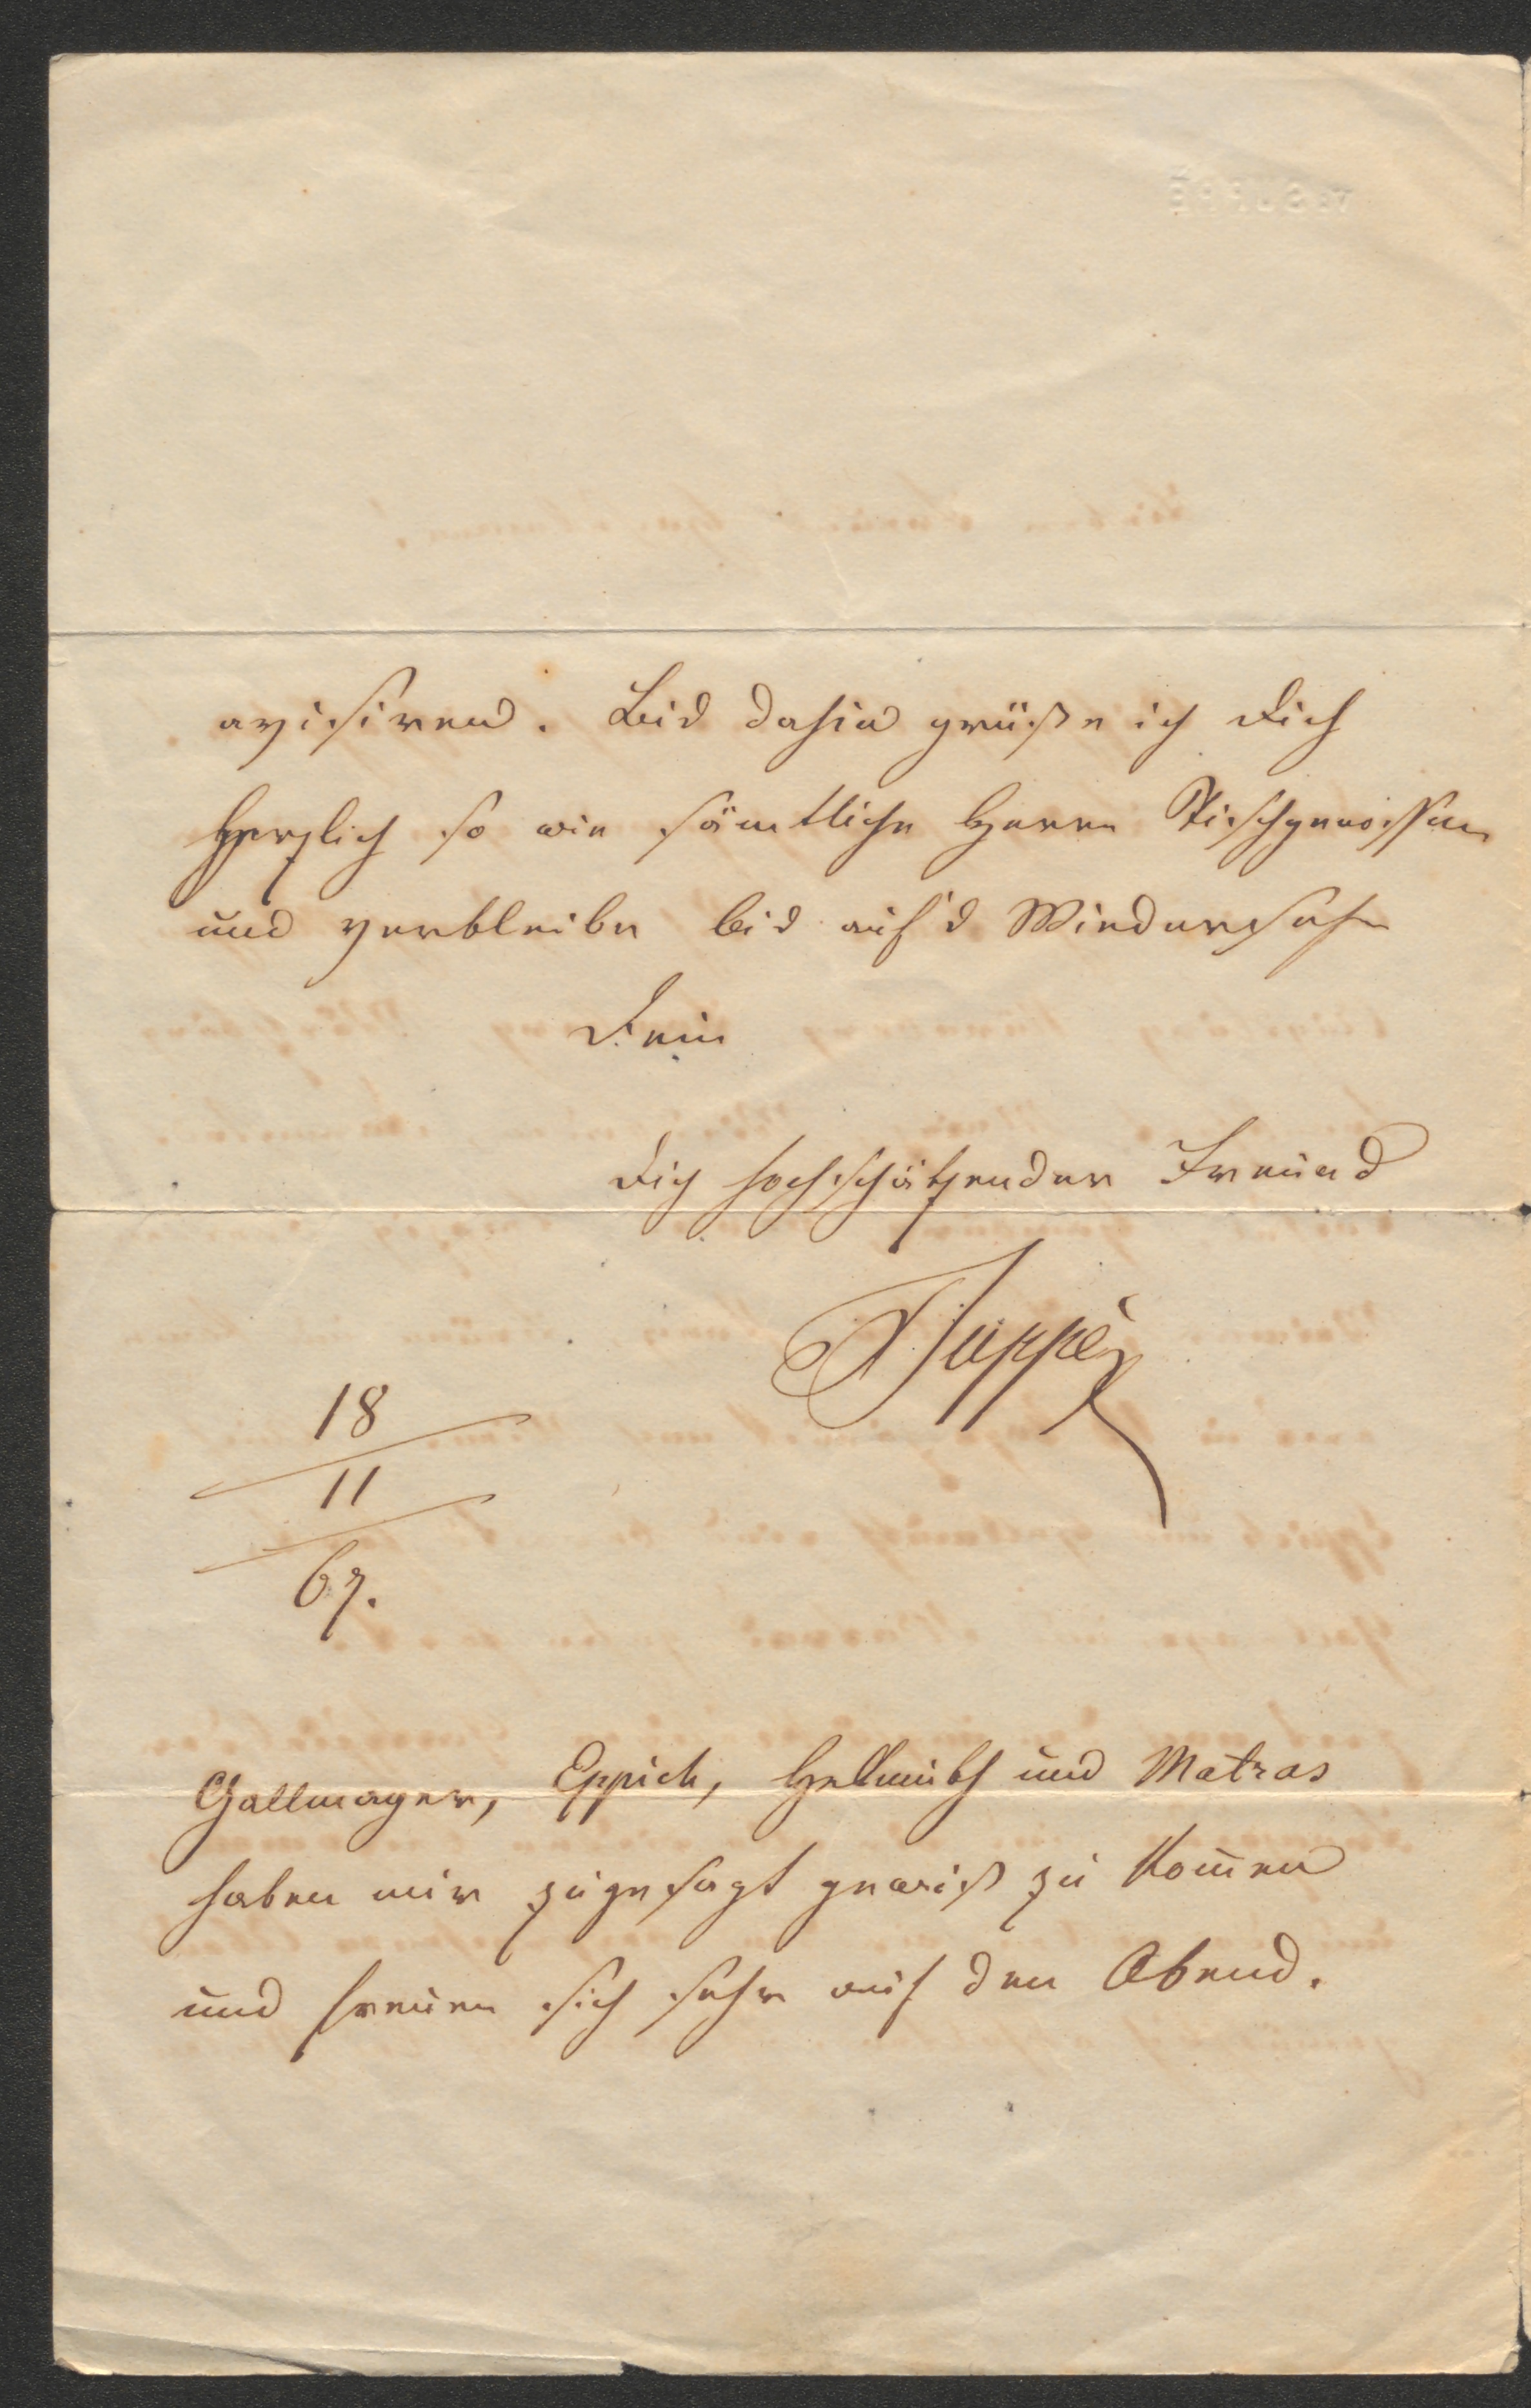 avisiren. Bis dahin grüße ich Dich
Herzlich so wie sämtliche Herrn Tischgenossen
und verbleibe bis auf's Wiedersehn
Dein
Dich hochschätzender Freund
Suppé
18
11
67.
Gallmayer, Eppich, Hellmuth und Matras
haben mir zugesagt gewiß zu kom̄en
und freuen sich sehr auf den Abend.